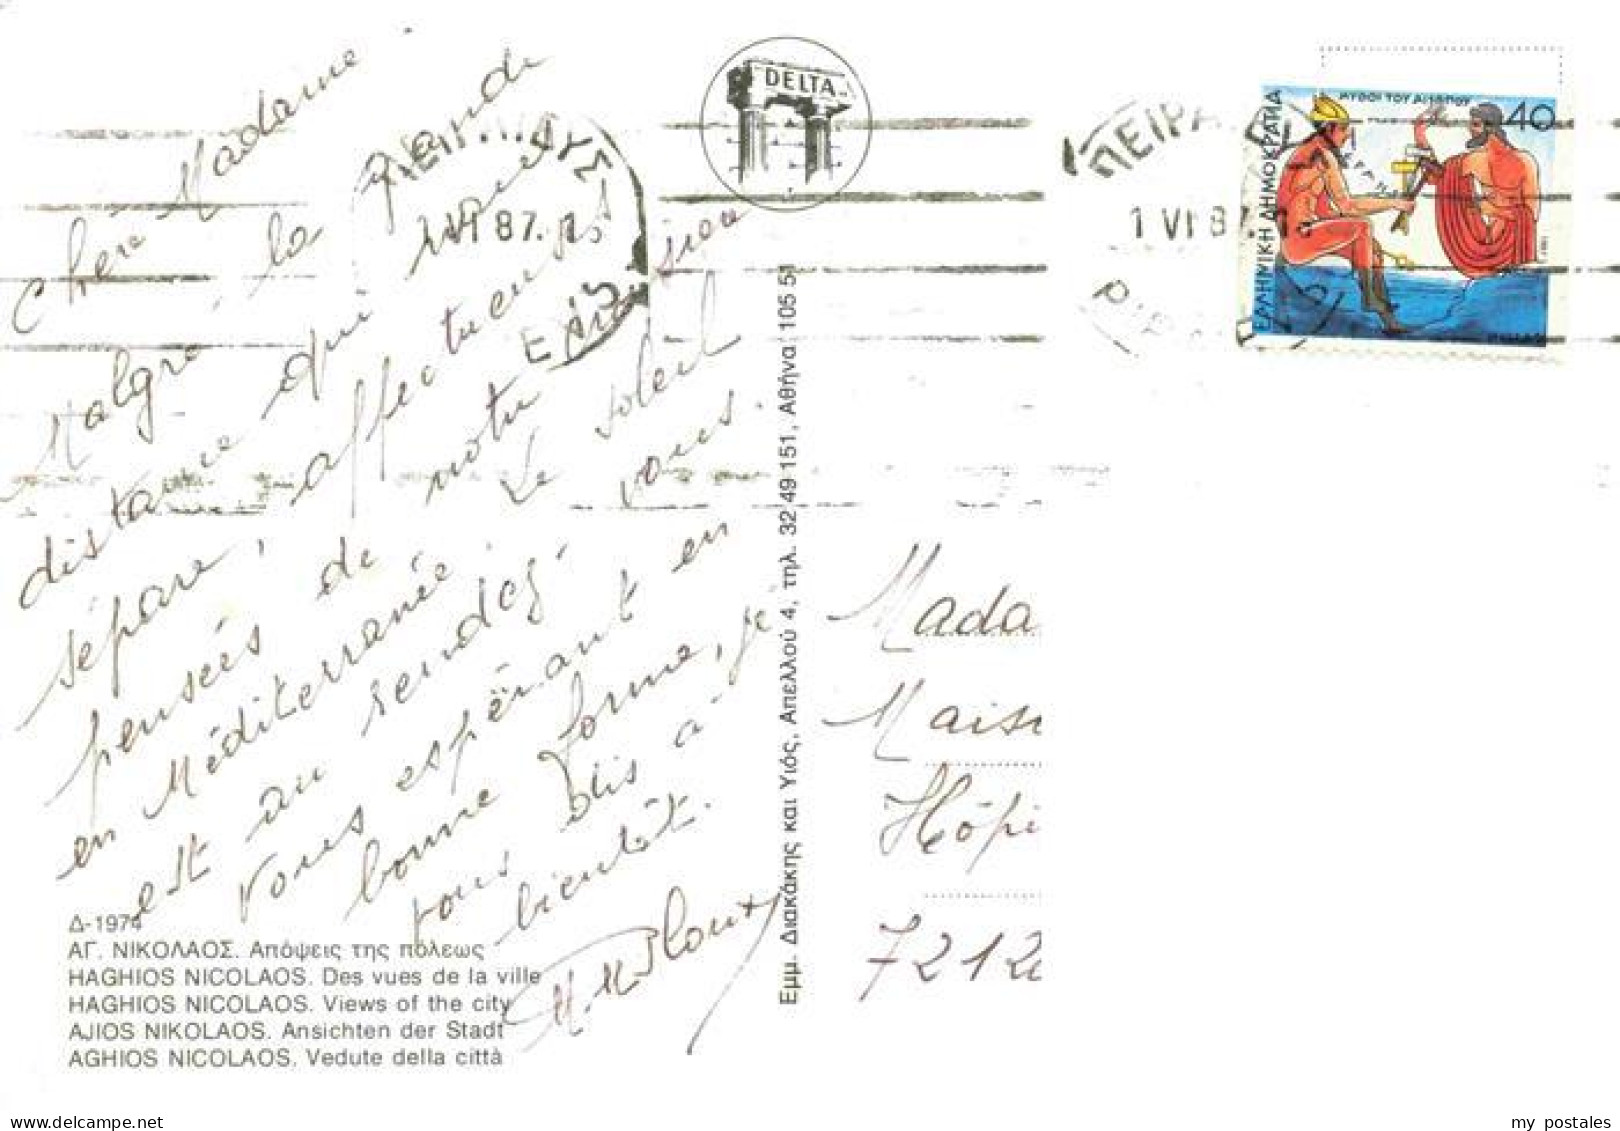 Chère Madame
Malgré la grande
distance qui nous
sépare, affectueuses
pensées de notre
en Méditerranée. Le soleil
est au rendez-vous.
Vous espérant en
bonne forme, je
vous dis à
bientôt.
DELTA
ΠΕΙΡΑ
1 VI 87
1 VI 87
ΜΥΘΟΙ ΤΟΥ ΑΙΣΩΠΟΥ
40
ΕΛΛΗΝΙΚΗ ΔΗΜΟΚΡΑΤΙΑ
Mada
Mais
Hôpi
7212
Εμμ. Διακάκης και Υιός, Απελλού 4, τηλ. 32 49 151, Αθήνα 105 51
Δ-1974
ΑΓ. ΝΙΚΟΛΑΟΣ. Απόψεις της πόλεως
HAGHIOS NICOLAOS. Des vues de la ville
HAGHIOS NICOLAOS. Views of the city
AJIOS NIKOLAOS. Ansichten der Stadt
AGHIOS NICOLAOS. Vedute della città
my postales